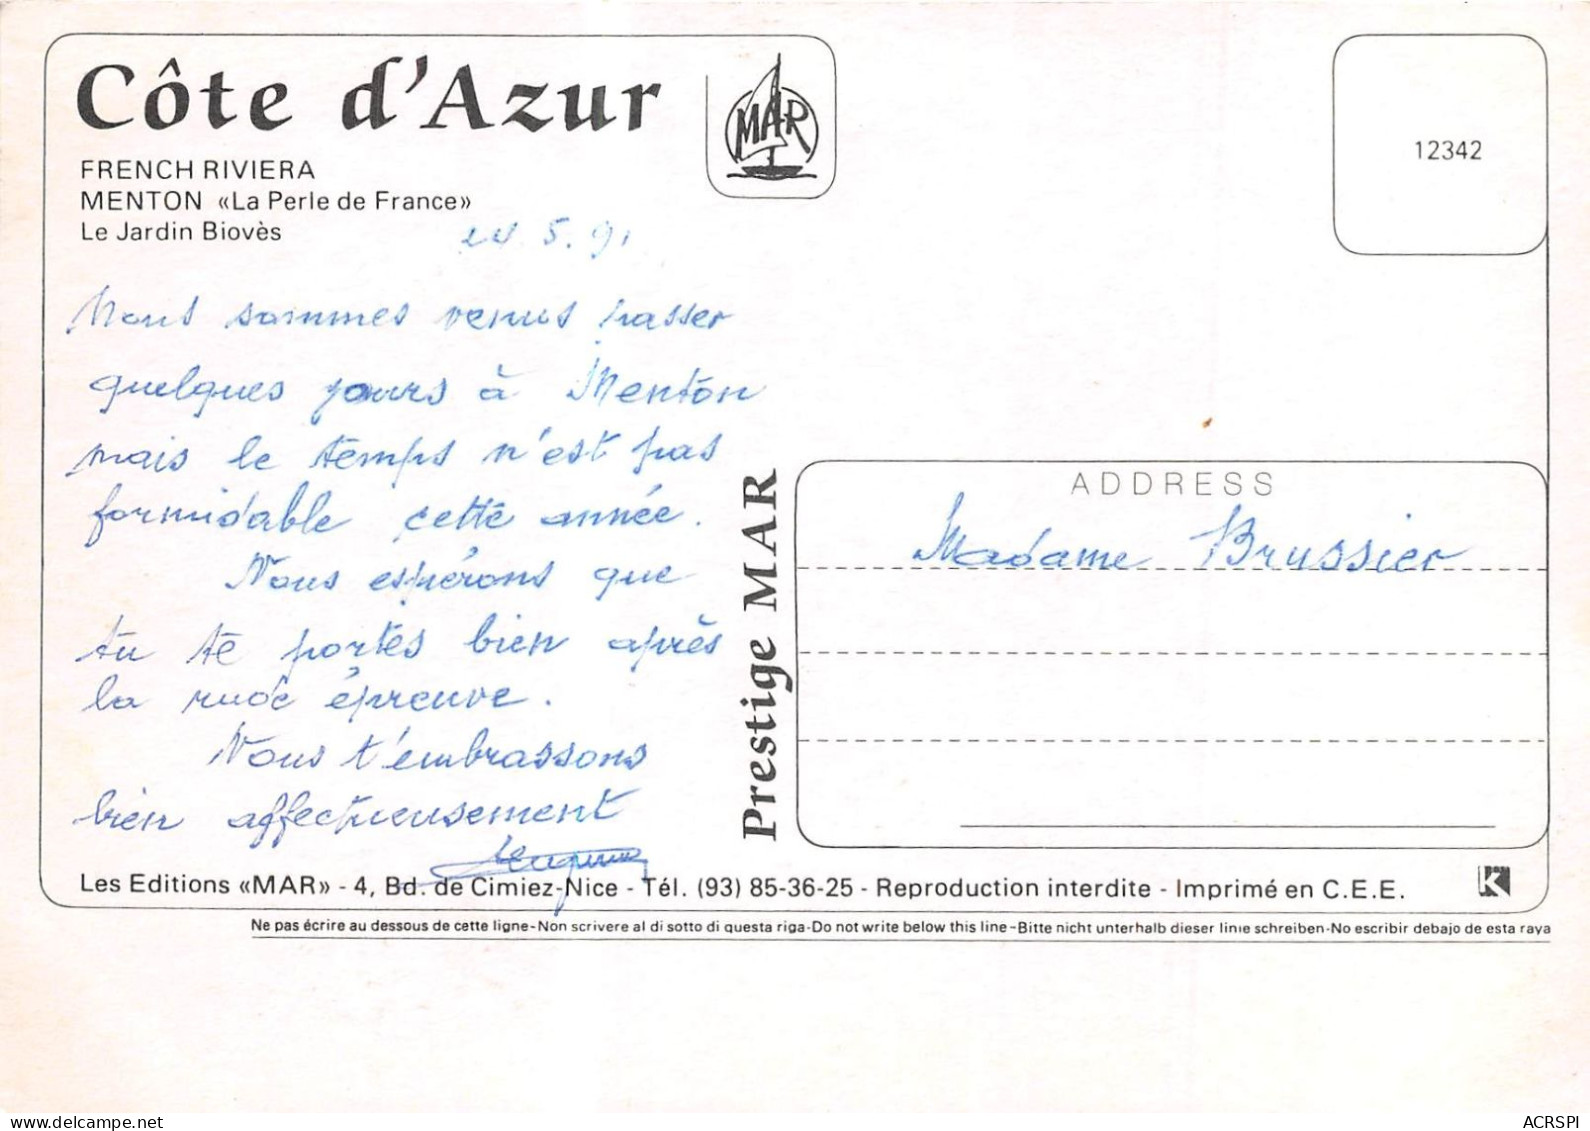 Côte d'Azur
MAR
FRENCH RIVIERA
MENTON «La Perle de France»
Le Jardin Biovès
12342
24.5.91
Nous sommes venus passer
quelques jours à Menton
mais le temps n'est pas
formidable cette année.
Nous espérons que
tu te portes bien après
la rude épreuve.
Nous t'embrassons
bien affectueusement
Prestige MAR
ADDRESS
Madame Brussier
Les Editions «MAR» - 4, Bd. de Cimiez-Nice - Tél. (93) 85-36-25 - Reproduction interdite - Imprimé en C.E.E.
K
Ne pas écrire au dessous de cette ligne-Non scrivere al di sotto di questa riga-Do not write below this line-Bitte nicht unterhalb dieser linie schreiben-No escribir debajo de esta raya
ACRSPI